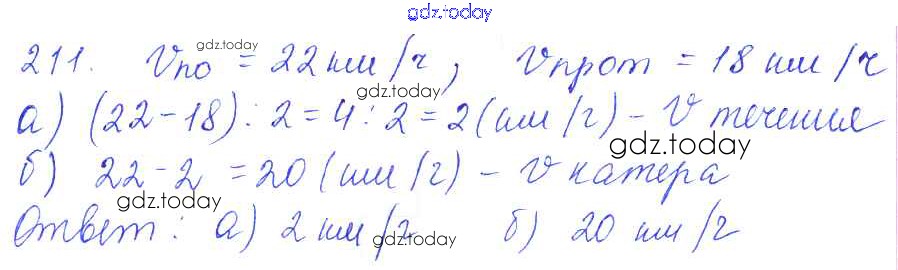 gdz.today
211. Vпо = 22 км/ч, Vпрот = 18 км/ч
gdz.today
gdz.today
а) (22-18) : 2 = 4 : 2 = 2 (км/ч) - V течения
gdz.today
б) 22 - 2 = 20 (км/ч) - V катера
gdz.today
Ответ: а) 2 км/ч б) 20 км/ч
gdz.today